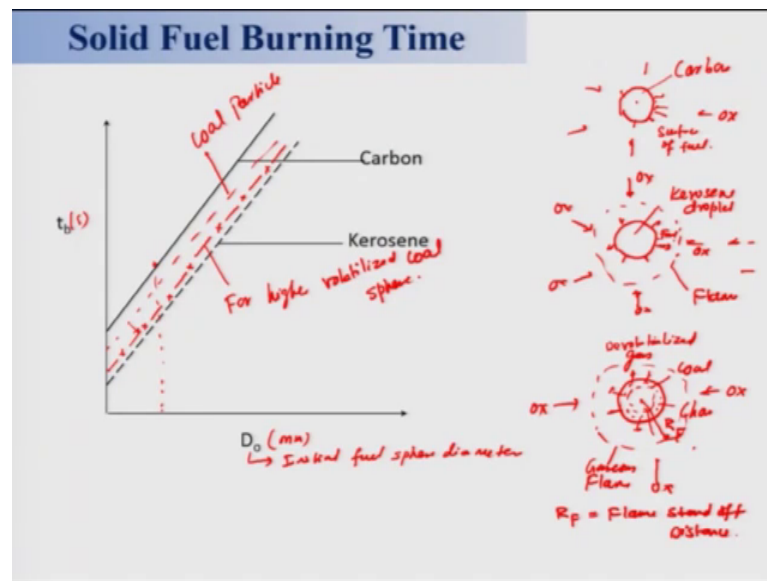 Solid Fuel Burning Time
Coal Particle
Carbon
Kerosene
t_b(s)
For higher volatilized coal
sphere.
D_o (mm)
↳ Initial fuel sphere diameter
Carbon
ox
Surface
of fuel.
ox
Kerosene
droplet
ox
ox
ox
ox
Flame
Devolatilized
gas
Coal
ox
ox
Char
R_F
Gaseous
Flame
ox
R_F = Flame stand off
Distance.